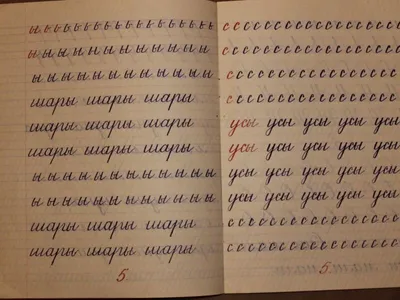 ы ы ы ы ы ы ы ы ы ы ы ы ы ы
ы ы ы ы ы ы ы ы ы ы ы ы
ы ы ы ы ы ы ы ы ы ы ы ы
шары шары шары
шары шары шары
шары шары шары
ы ы ы ы ы ы ы ы ы ы ы ы
ы ы ы ы ы ы ы ы ы ы ы ы
шары шары шары
шары шары шары
5
с с с с с с с с с с с с с с с с
с с с с с с с с с с с с с с с с
с с с с с с с с с с с с с с с с
с с с с с с с с с с с с с с с с
усы усы усы усы усы
усы усы усы усы усы
усы усы усы усы усы
усы усы усы усы усы
с с с с с с с с с с с с с с с с
с с с с с с с с с с с с с с с с
5